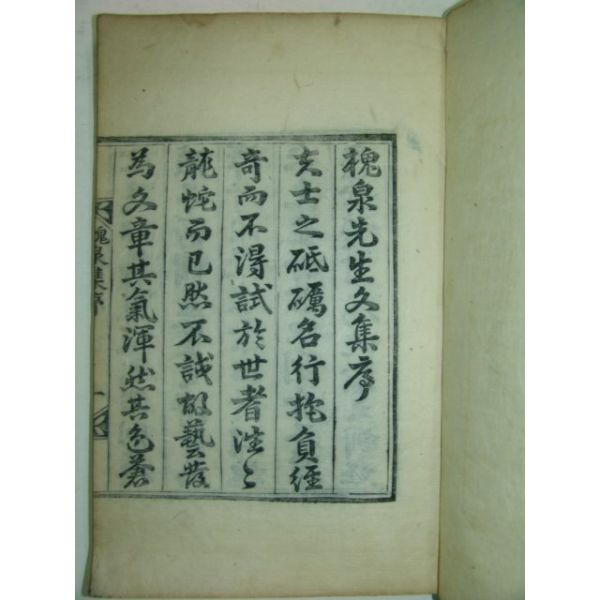 槐泉先生文集序
夫士之砥礪名行抱負經
奇而不得試於世者渄〻
龍蛇而已然不試故藝發
為文章其氣渾然其色蒼
槐泉集序
一